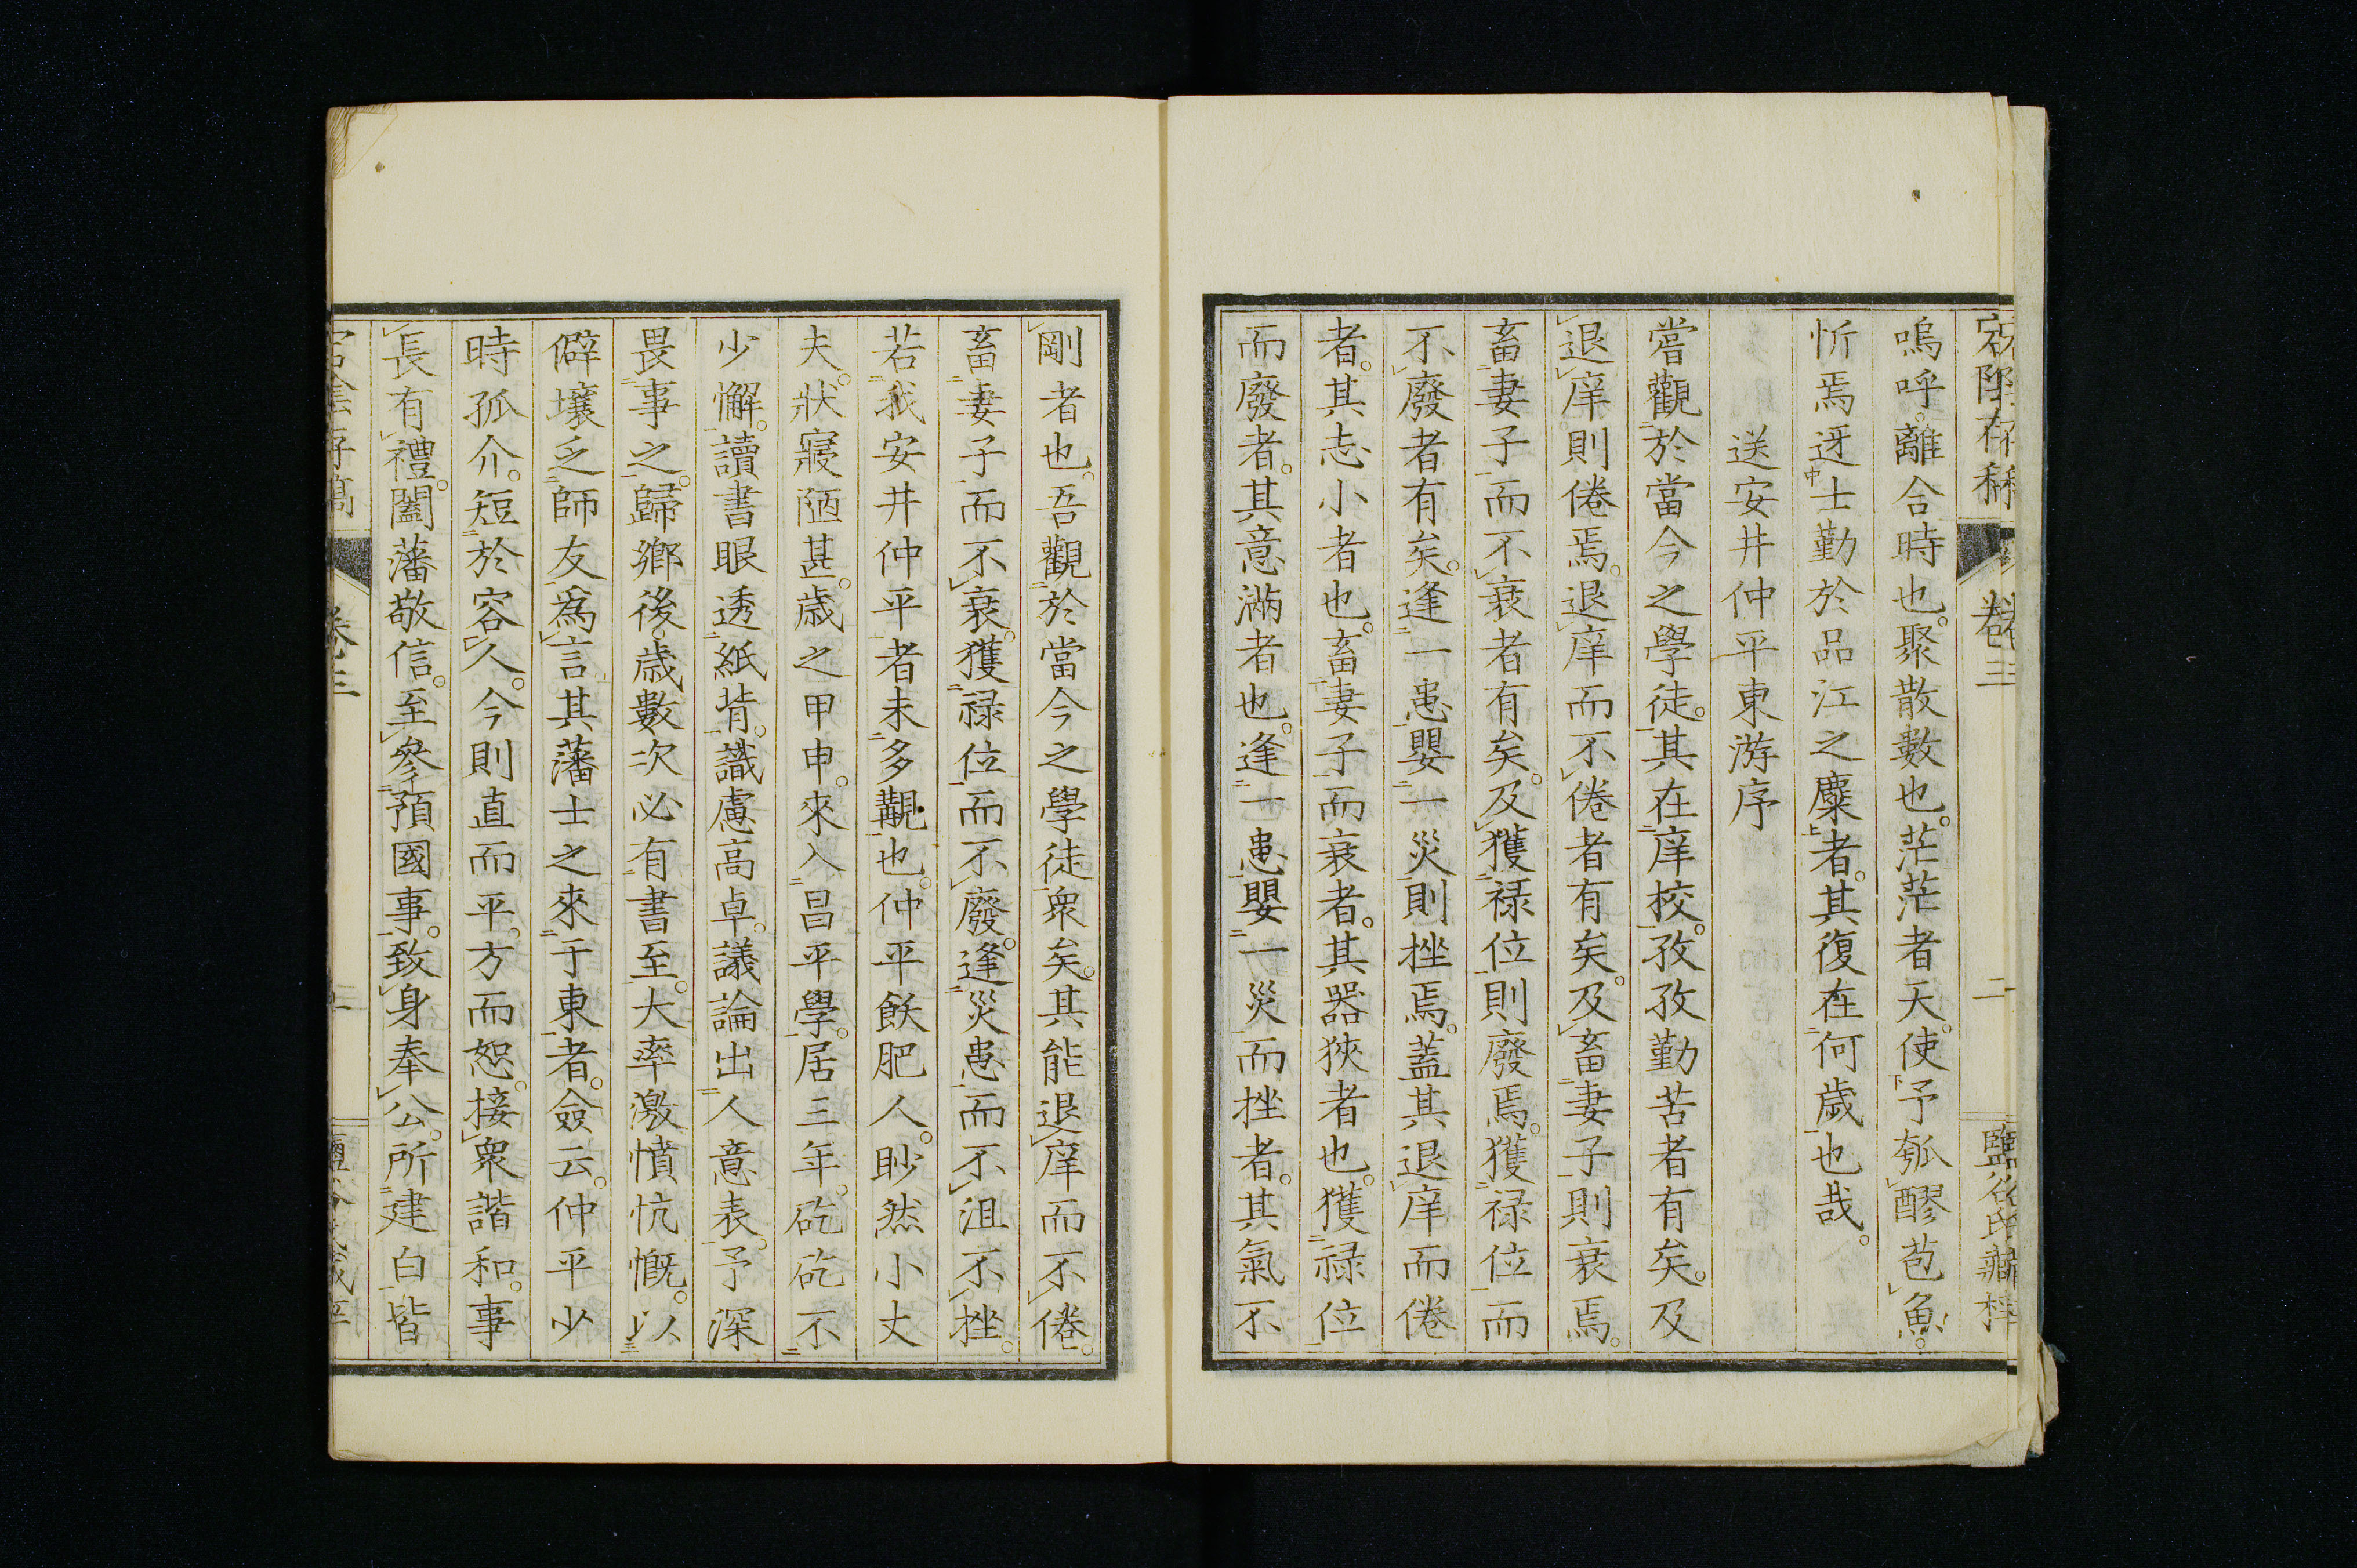 宕陰存稿 卷三 二 鹽谷氏藏梓
嗚呼。離合時也。聚散數也。茫茫者天。使予瓠醪苞魚。
忻焉迓士勤於品江之麋者。其復在何歲也哉。
送安井仲平東游序
嘗觀於當今之學徒。其在庠校。孜孜勤苦者有矣。及
退庠則倦焉。退庠而不倦者有矣。及畜妻子則衰焉。
畜妻子而不衰者有矣。及獲祿位則廢焉。獲祿位而
不廢者有矣。逢一患嬰一災則挫焉。蓋其退庠而倦
者。其志小者也。畜妻子而衰者。其器狹者也。獲祿位
而廢者。其意滿者也。逢一患嬰一災而挫者。其氣不
剛者也。吾觀於當今之學徒衆矣。其能退庠而不倦。
畜妻子而不衰。獲祿位而不廢。逢災患而不沮不挫。
若我安井仲平者未多觀也。仲平飫肥人。眇然小丈
夫。狀寢陋甚。歲之甲申。來入昌平學。居三年。矻矻不
少懈。讀書眼透紙背。識慮高卓。議論出人意表。予深
畏事之。歸鄉後。歲數次必有書至。大率激憤忼慨。以
僻壤乏師友爲言。其藩士之來于東者。僉云。仲平少
時孤介。短於容人。今則直而平。方而恕。接衆諧和。事
長有禮。闔藩敬信。至參預國事。致身奉公。所建白皆
宕陰存稿 卷三